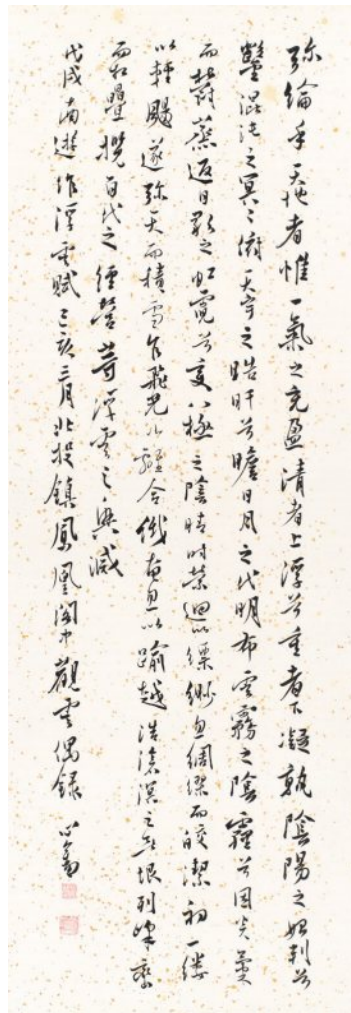 弥綸乎天地者惟一氣之充盈清者上浮兮重者下凝孰陰陽之始判兮
鑿混沌之冥冥俯天宇之晧旰兮瞻日月之代明布雲霧之陰霾兮因炎
而鬱蒸返日影之虹霓兮變八極之陰晴時縈迴以縹緲忽綢繆而皎潔初一縷
以輕颺遂彌天而積雪乍飛光以 合倏奄忽以踰越浩滄溟之無垠列峰巒
而相疊攬百代之經營等浮雲之興滅
戊戌南遊作浮雲賦己亥三月北投鎮鳳凰閣中觀雲偶錄 心畬